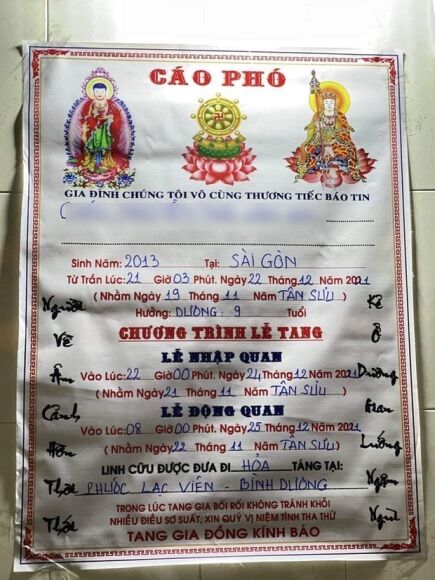 CÁO PHÓ
GIA ĐÌNH CHÚNG TÔI VÔ CÙNG THƯƠNG TIẾC BÁO TIN
Sinh Năm: 2013 Tại: SÀI GÒN
Từ Trần Lúc: 21 Giờ 03 Phút. Ngày 22 Tháng 12 Năm 2021
( Nhằm Ngày 19 Tháng 11 Năm TÂN SỬU )
Hưởng: DƯƠNG: 9 Tuổi
CHƯƠNG TRÌNH LỄ TANG
LỄ NHẬP QUAN
Vào Lúc: 22 Giờ 00 Phút. Ngày 24 Tháng 12 Năm 2021
( Nhằm Ngày 21 Tháng 11 Năm TÂN SỬU )
LỄ ĐỘNG QUAN
Vào Lúc: 08 Giờ 00 Phút. Ngày 25 Tháng 12 Năm 2021
( Nhằm Ngày 22 Tháng 11 Năm TÂN SỬU )
LINH CỮU ĐƯỢC ĐƯA ĐI HỎA TÁNG TẠI:
PHÚC LẠC VIÊN - BÌNH DƯƠNG
TRONG LÚC TANG GIA BỐI RỐI KHÔNG TRÁNH KHỎI
NHIỀU ĐIỀU SƠ SUẤT, XIN QUÝ VỊ NIỆM TÌNH THA THỨ
TANG GIA ĐỒNG KÍNH BÁO
Người
Về
Âm
Cảnh
Hồn
Thơ
Thới
Kẻ
Ở
Dương
Gian
Luống
Ngậm
Ngùi